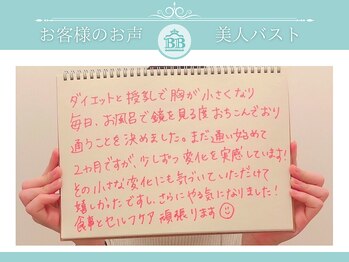 お客様のお声
BB
美人バスト
ダイエットと授乳で胸が小さくなり
毎日、お風呂で鏡を見る度おちこんでおり
通うことを決めました。まだ通い始めて
2ヵ月ですが、少しずつ変化を実感しています!
その小さな変化にも気づいていただけて
嬉しかったですし、さらにやる気になりました!
食事とセルフケア頑張ります